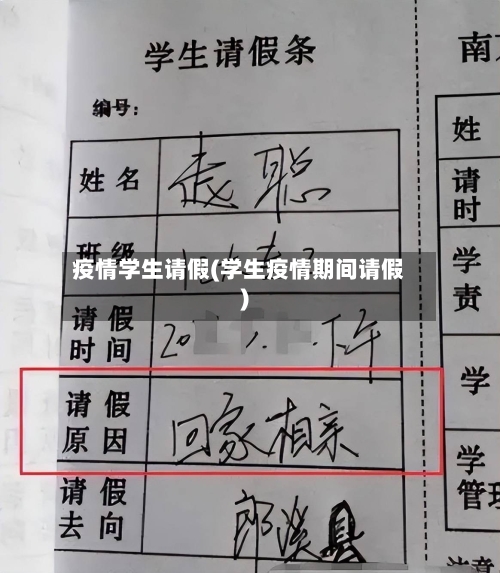 学生请假条
编号：
姓名 袁聪
班级
疫情学生请假(学生疫情期间请假
)
请假
时间 20 下午
请假
原因 回家相亲
请假
去向 郎溪县
南
姓
请
时
学
责
学
学
管理
注意